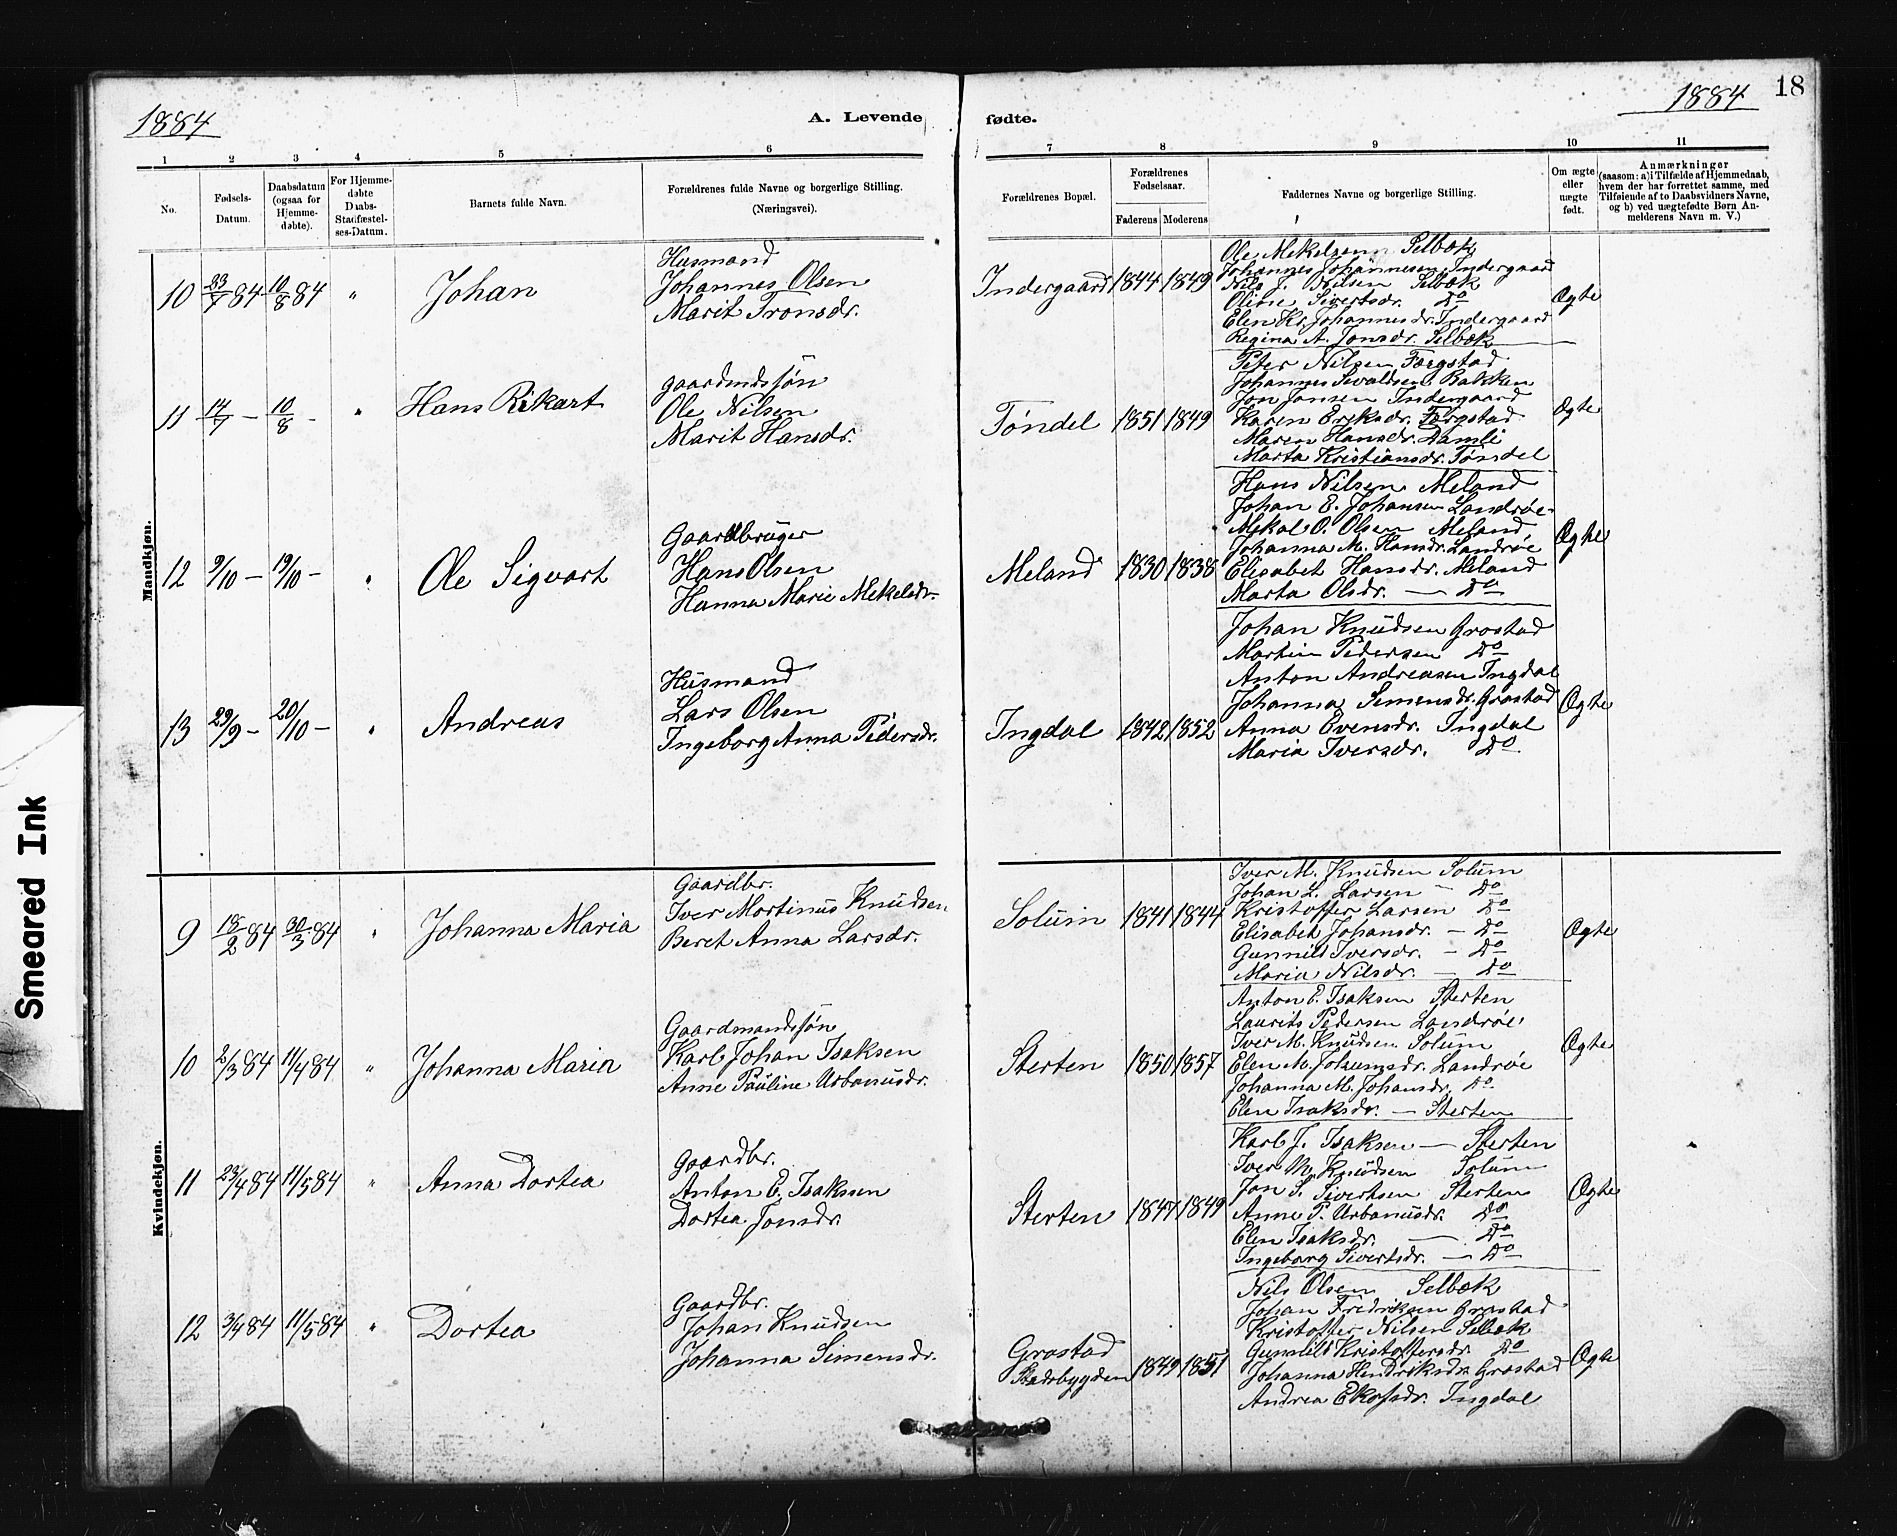 1884
A. Levende
fødte.
1884
18
1 2 3 4 5 6 7 8 9 10 11
No.
Fødsels-
Datum.
Daabsdatum
(ogsaa for
Hjemme-
døbte).
For Hjemme-
døbte
Daabs-
Stadfæstel-
ses-Datum.
Barnets fulde Navn.
Forældrenes fulde Navne og borgerlige Stilling.
(Næringsvei).
Forældrenes Bopæl.
Forældrenes
Fødselsaar.
Faderens Moderens
Faddernes Navne og borgerlige Stilling.
Om ægte
eller
uægte
født.
Anmærkninger
(saasom: a) i Tilfælde af Hjemmedaab,
hvem der har forrettet samme, med
Tilføiende af to Daabsvidners Navne,
og b) ved uægtefødte Børn An-
melderens Navn m. V.)
Mandkjøn.
10 23/7 84 10/8 84 " Johan
Husmand
Johannes Olsen
Marit Tronsdr.
Indergaard 1844 1849
Ole Mekelsenn Selbæk
Johannes Johannesen Indergaard
Nils J. Nilsen Selbæk
Oline Sivertsdr. Do
Elen Kr. Johannesdr. Indergaard
Regina A. Jonsdr. Selbæk
Ægte
11 14/7 - 10/8 - " Hans Rikart
gaardmdssøn
Ole Nilsen
Marit Hansdr.
Tøndel 1851 1849
Peter Nilsen Færgstad
Johannes Sivaldsen Bakken
Jon Jonsen Indergaard
Karen Eriksdr. Færgstad
Maren Hansdr. Damli
Marta Kristiansdr. Tøndel
Ægte
12 9/10 - 19/10 - " Ole Sigvart
Gaardbruger
Hans Olsen
Hanna Marie Mekelsdr.
Meland 1830 1838
Hans Nilsen Meland
Johan E. Johansen Landrøe
Mekal O. Olsen Meland
Johanna M. Hansdr. Landrøe
Elisabet Hansdr. Meland
Marta Olsdr. — Do
Ægte
13 29/9 - 20/10 - " Andreas
Husmand
Lars Olsen
Ingeborg Anna Pedersdr.
Ingdal 1842 1852
Johan Knudsen Grostad
Martin Pedersen Do
Anton Andreasen Ingdal
Johanna Simensdr. Grostad
Anna Evensdr. Ingdal
Maria Iversdr. Do
Ægte
Kvindekjøn.
9 18/2 84 30/3 84 " Johanna Maria
Gaardbr.
Iver Martinus Knudsen
Beret Anna Larsdr.
Solum 1841 1844
Iver M. Knudsen Solum
Johan L. Larsen - Do
Kristoffer Larsen Do
Elisabet Johansdr. - Do
Gunnild Iversdr. - Do
Maria Nilsdr. — Do
Ægte
10 2/3 84 11/4 84 " Johanna Maria
Gaardmandssøn
Karl Johan Isaksen
Anne Pauline Urbanusdr.
Sterten 1850 1857
Anton E. Isaksen Sterten
Laurits Pedersen Landrøe
Iver M. Knudsen Solum
Elen M. Johansdr. Landrøe
Johanna M. Johansdr. Do
Elen Isaksdr. — Sterten
Ægte
11 23/4 84 11/5 84 " Anna Dortea
Gaardbr.
Anton E. Isaksen
Dortea Jonsdr.
Sterten 1847 1849
Karl J. Isaksen — Sterten
Iver M. Knudsen Solum
Jon S. Sivertsen Sterten
Anne P. Urbanusdr. Do
Elen Isaksdr. — Do
Ingeborg Sivertsdr. — Do
Ægte
12 3/4 84 11/5 84 " Dortea
Gaardbr.
Johan Knudsen
Johanna Simensdr.
Grostad
Stadsbygden 1849 1851
Nils Olsen Selbæk
Johan Fredriksen Grostad
Kristoffer Nilsen Selbæk
Gunnild Kristoffersdr. Do
Johanna Hendriksdr. Grostad
Andrea Ekofsdr. Ingdal
Ægte
Smeared Ink